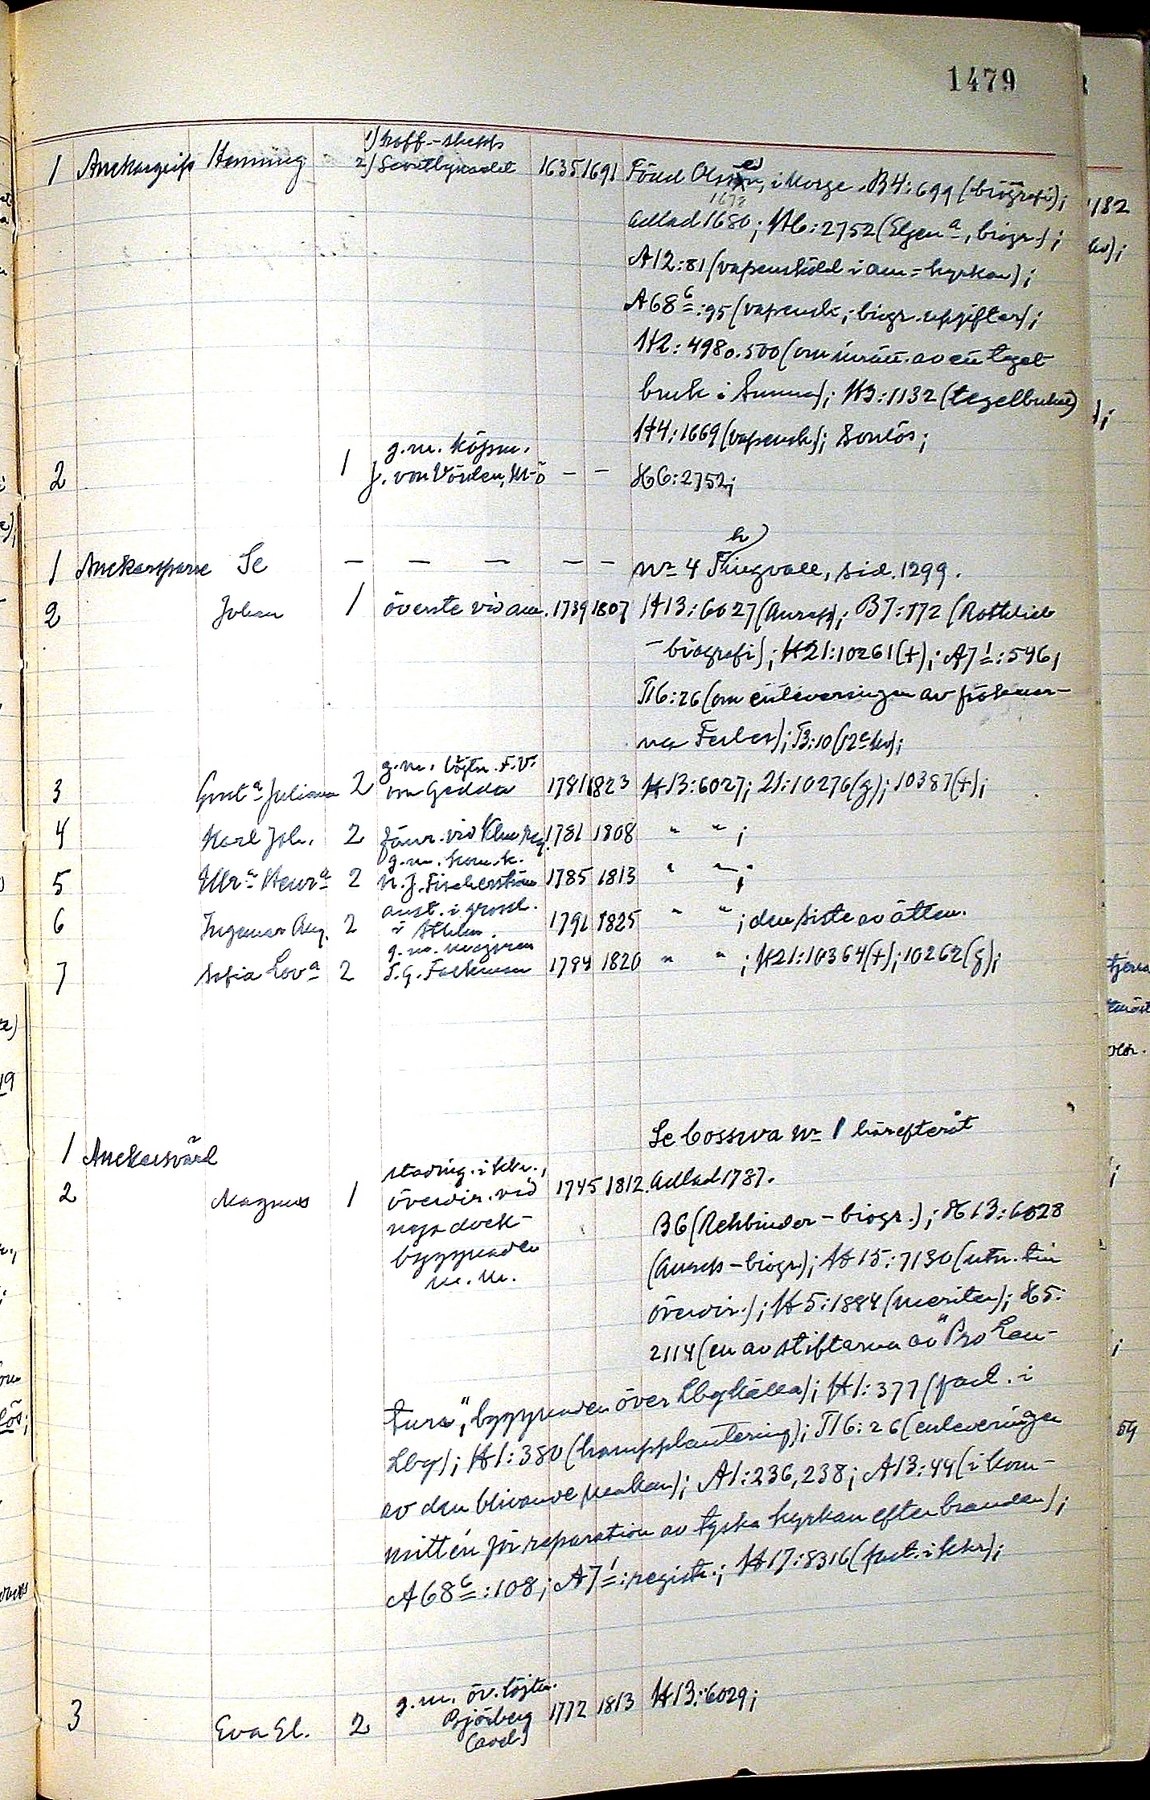 1479
1) hoff.-skepps
1 Anckargrip Henning 2) Scoutbynacht 1635 1691 Född Olsen, i Norge. B4:699 (biografi);
1673
adlad 1680; H6:2752 (Elgenª, biogr.);
A12:81 (vapensköld i am=kyrkan);
A68⁶:95 (vapensk., biogr. uppgifter);
H2:498 o. 500 (om inrätt. av ett tegel
bruk i Sunna); H3:1132 (tegelbruket)
H4:1669 (vapensk.); Sonlös;
g.m. köpm.
2 1 J. von Vörden, — — H6:2752;
1 Anckarsparre Se — — — — — — nr 4 Thingvall, sid. 1299.
2 Johan 1 överste vid am. 1739 1807 H13:6027 (Anrep); B7:172 (Rottlieb
-biografi); H21:10261 (+); A7¹:596,
T16:26 (om enleveringen av fröknar-
na Ferber); T3:10
g.m. löjtn. F.V.
3 Gustª Juliana 2 von Gedda 1781 1823 H13:6027; 21:10276 (g); 10387 (+);
4 Karl Joh. 2 fänr. vid 1781 1808 " " ;
g.m. kom.k.
5 Ulrª Henrª 2 N.J. Fischerström 1785 1813 " " ;
anst. i grossh.
6 Ingemar Aug. 2 i Sthlm. 1791 1825 " " ; den siste av ätten.
g.m. majoren
7 Sofia Lovª 2 T.G. Falkman 1794 1820 " " ; H21:10364 (+); 10262 (g);
1 Anckarsvärd Se Cosswa nr 1 härefteråt
2 Magnus 1 stading. i Kkr., 1745 1812 Adlad 1787.
överdir. vid
nya dock-
byggnaden
m.m.
B6 (Rehbinder-biogr.); H13:6028
(Anreps-biogr); H15:7130 (utn. till
överdir.); H5:1884 (meriter); H5:
2114 (en av stiftarna av "Pro Lan-
tura", byggnaden över Lbykälla); H1:377 (fast. i
Lby); H1:380 (hampplantering); T16:26 (enleveringen
av den blivande makan); A1:236, 238; A13:44 (i kom-
mittén för reparation av tyska kyrkan efter branden);
A68⁶:108; A7¹:registr.; H17:8316 (fast. i Kkr);
g.m. öv. löjtn.
3 Eva El. 2 Björnberg 1772 1813 H13:6029;
(avd)